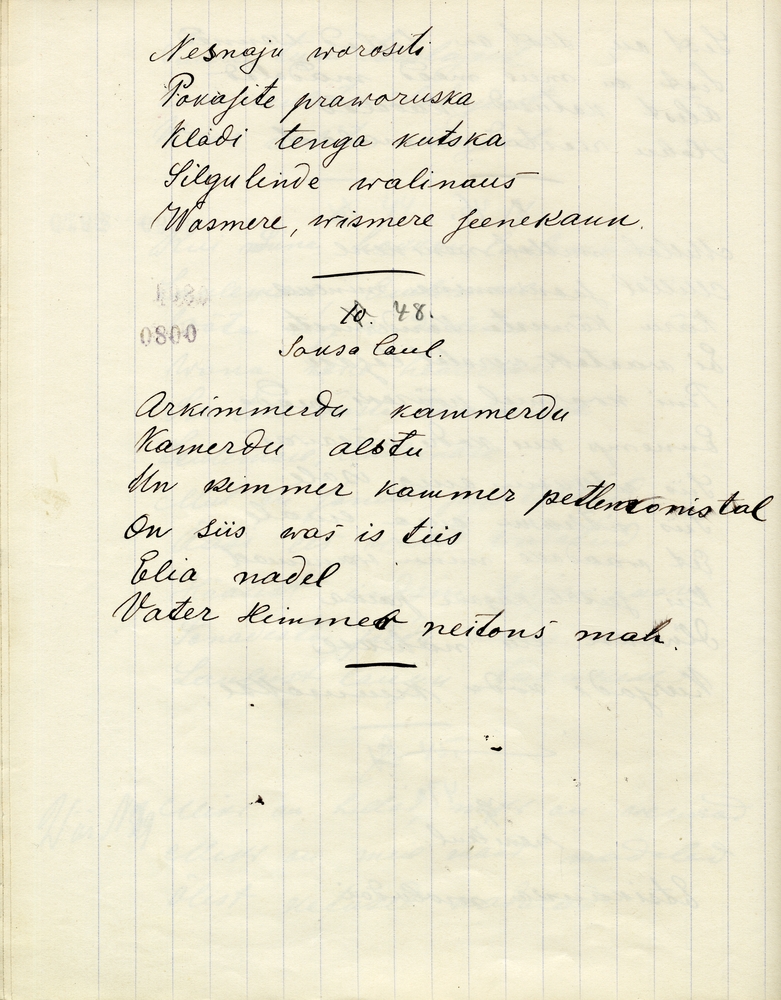 Nesnaju worositi
Pokasite praworuska
Kladi tenga kutska
Silgulinde walinaus
Wasmere, wismere seenekaun.
10. 48.
0800
Saksa laul.
Arkimmerdu kammerdu
Kamerdu alstu
Un kimmer kammer petlemonistal
On siis was is tiis
Elia nadel
Vater Himmel neitons mah.